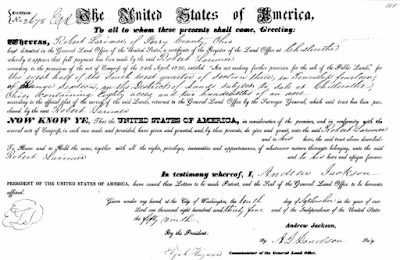 The United States of America,
To all to whom these presents shall come, Greeting:
Whereas, Robert Larimer of Perry County, Ohio
has deposited in the General Land Office of the United States, a certificate of the Register of the Land Office at Chillicothe
whereby it appears that full payment has been made by the said Robert Larimer
according to the provisions of the act of Congress of the 24th April, 1820, entitled "An act making further provision for the sale of the Public Lands," for
the west half of the South East quarter of section three, in Township fourteen
of Range sixteen, in the District of Lands subject to sale at Chillicothe,
Ohio, containing eighty acres and hundredths of an acre
according to the official plat of the survey of the said Lands, returned to the General Land Office by the Surveyor General, which said tract has been purchased by the said Robert Larimer
NOW KNOW YE, That the UNITED STATES OF AMERICA, in consideration of the premises, and in conformity with the
several acts of Congress, in such case made and provided, have given and granted, and by these presents, do give and grant, unto the said Robert Larimer
and to his heirs, the said tract above described:
To Have and to Hold the same, together with all the rights, privileges, immunities and appurtenances, of whatsoever nature thereunto belonging, unto the said
Robert Larimer and to his heirs and assigns forever.
In testimony whereof, I, Andrew Jackson
PRESIDENT OF THE UNITED STATES OF AMERICA, have caused these Letters to be made Patent, and the Seal of the General Land Office to be hereunto
affixed.
Given under my hand, at the City of Washington, the tenth day of September in the year of our
Lord one thousand eight hundred and thirty five and of the Independence of the United States
the
By the President: Andrew Jackson,
By A. J. Donelson Sec'y
Elijah Hayward Commissioner of the General Land Office.